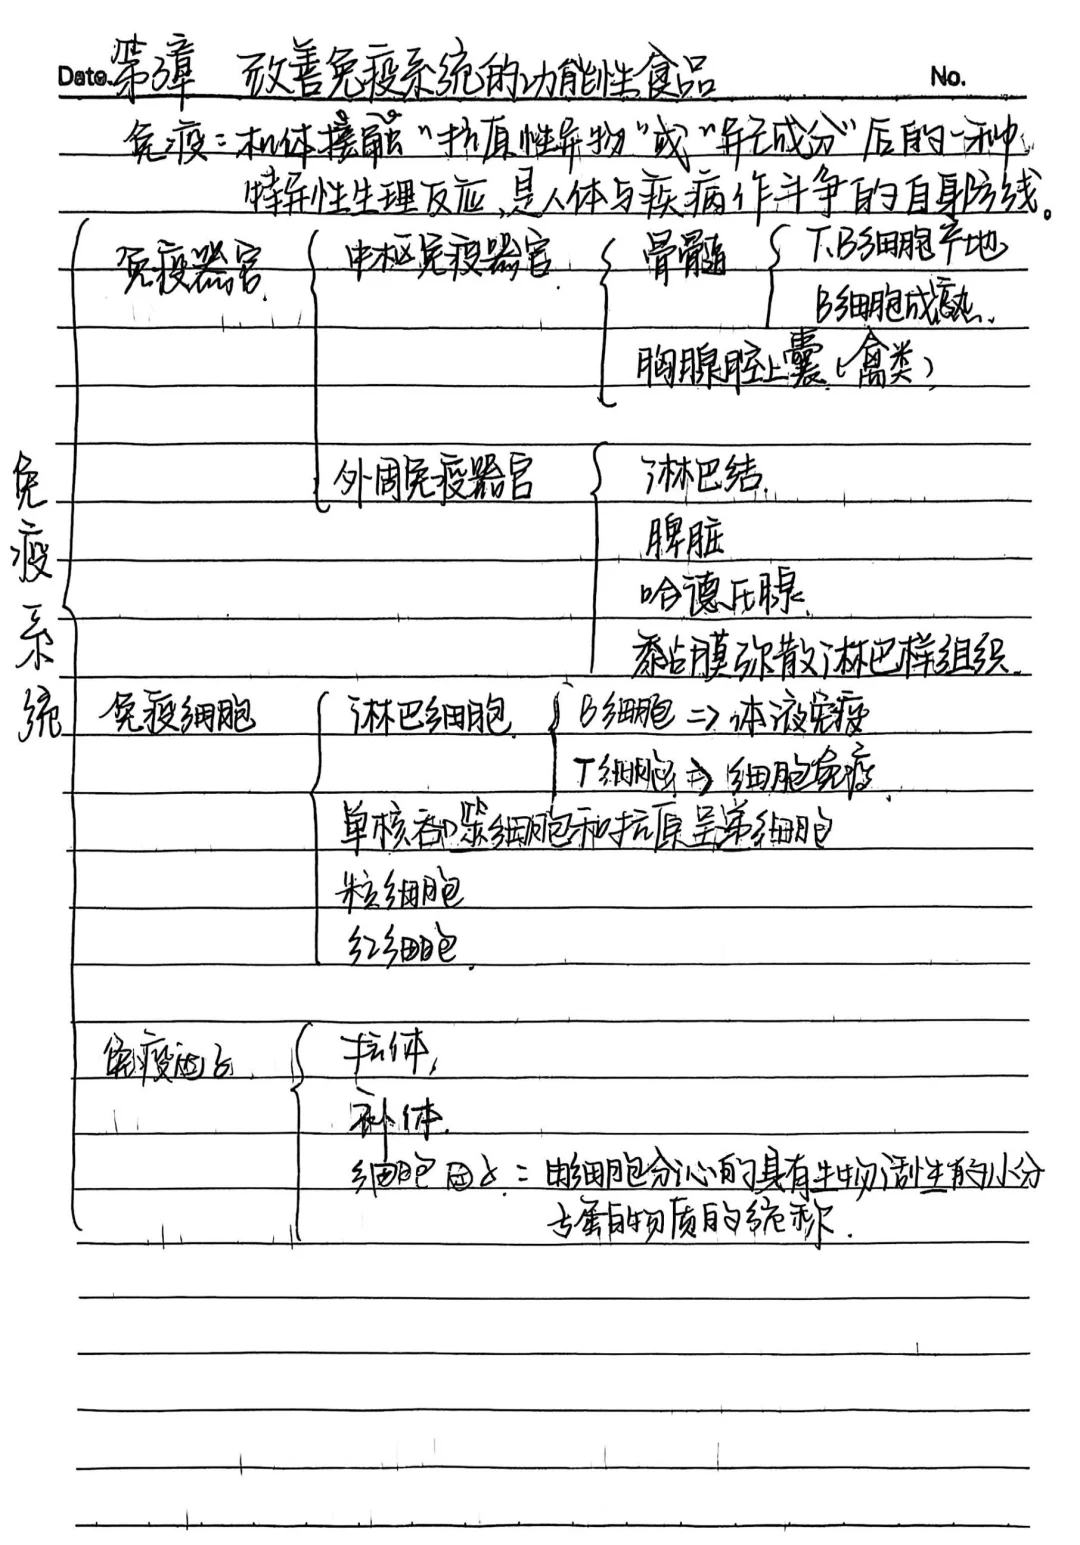 Date. 第3章 改善免疫系统的功能性食品 No.
免疫：机体接触“抗原性异物”或“异己成分”后的一种
特异性生理反应，是人体与疾病作斗争的自身防线。
免疫系统
免疫器官 中枢免疫器官 骨髓 T.B细胞产地
B细胞成熟.
胸腺腔上囊（禽类）
外周免疫器官 淋巴结
脾脏
哈德氏腺
黏膜弥散淋巴样组织.
免疫细胞 淋巴细胞 B细胞 => 体液免疫
T细胞 => 细胞免疫
单核吞噬细胞和抗原呈递细胞
粒细胞
红细胞.
免疫 抗体,
补体.
细胞因子：由细胞分泌的具有生物活性的小分
子蛋白物质的统称.